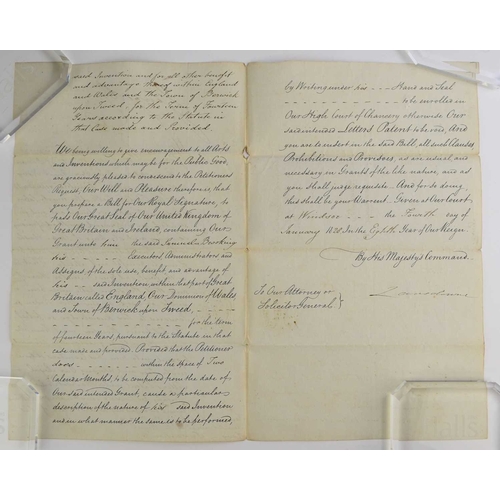 said Invention and for all other benefit
and advantage thereof within England
and Wales and the Town of Berwick
upon Tweed, for the Term of Fourteen
Years according to the Statute in
that Case made and Provided.
We being willing to give encouragement to all Arts
and Inventions which may be for the Public Good,
are graciously pleased to condescend to the Petitioner's
Request, Our Will and Pleasure therefore is that
you prepare a Bill for Our Royal Signature, to
pass Our Great Seal of Our United Kingdom of
Great Britain and Ireland, containing Our
Grant unto him the said Samuel
his - - - Executors, Administrators and
Assigns of the sole use, benefit and advantage of
his - - said Invention within that part of Great
Britain called England, Our Dominion of Wales
and Town of Berwick upon Tweed - - - -
- - - - - - - - - for the term
of fourteen Years pursuant to the Statute in that
case made and provided. Provided that the Petitioner
do - - - - - within the space of Two
Calendar Months, to be computed from the date of
Our said intended Grant, cause a particular
description of the nature of his said Invention
and in what manner the same is to be performed,
by Writing under his - - - Hand and Seal
- - - - - - - - - to be inrolled in
Our High Court of Chancery otherwise Our
said intended Letters Patent to be void, And
you are to insert in the said Bill, all such Clauses
Prohibitions and Provisoes, as are usual and
necessary in Grants of the like nature, and as
you Shall judge requisite. And for so doing
this shall be your Warrant. Given at Our Court
at Windsor - - - the Fourth day of
January 1828 In the Eighth Year of Our Reign.
By His Majesty's Command.
To Our Attorney or
Solicitor General